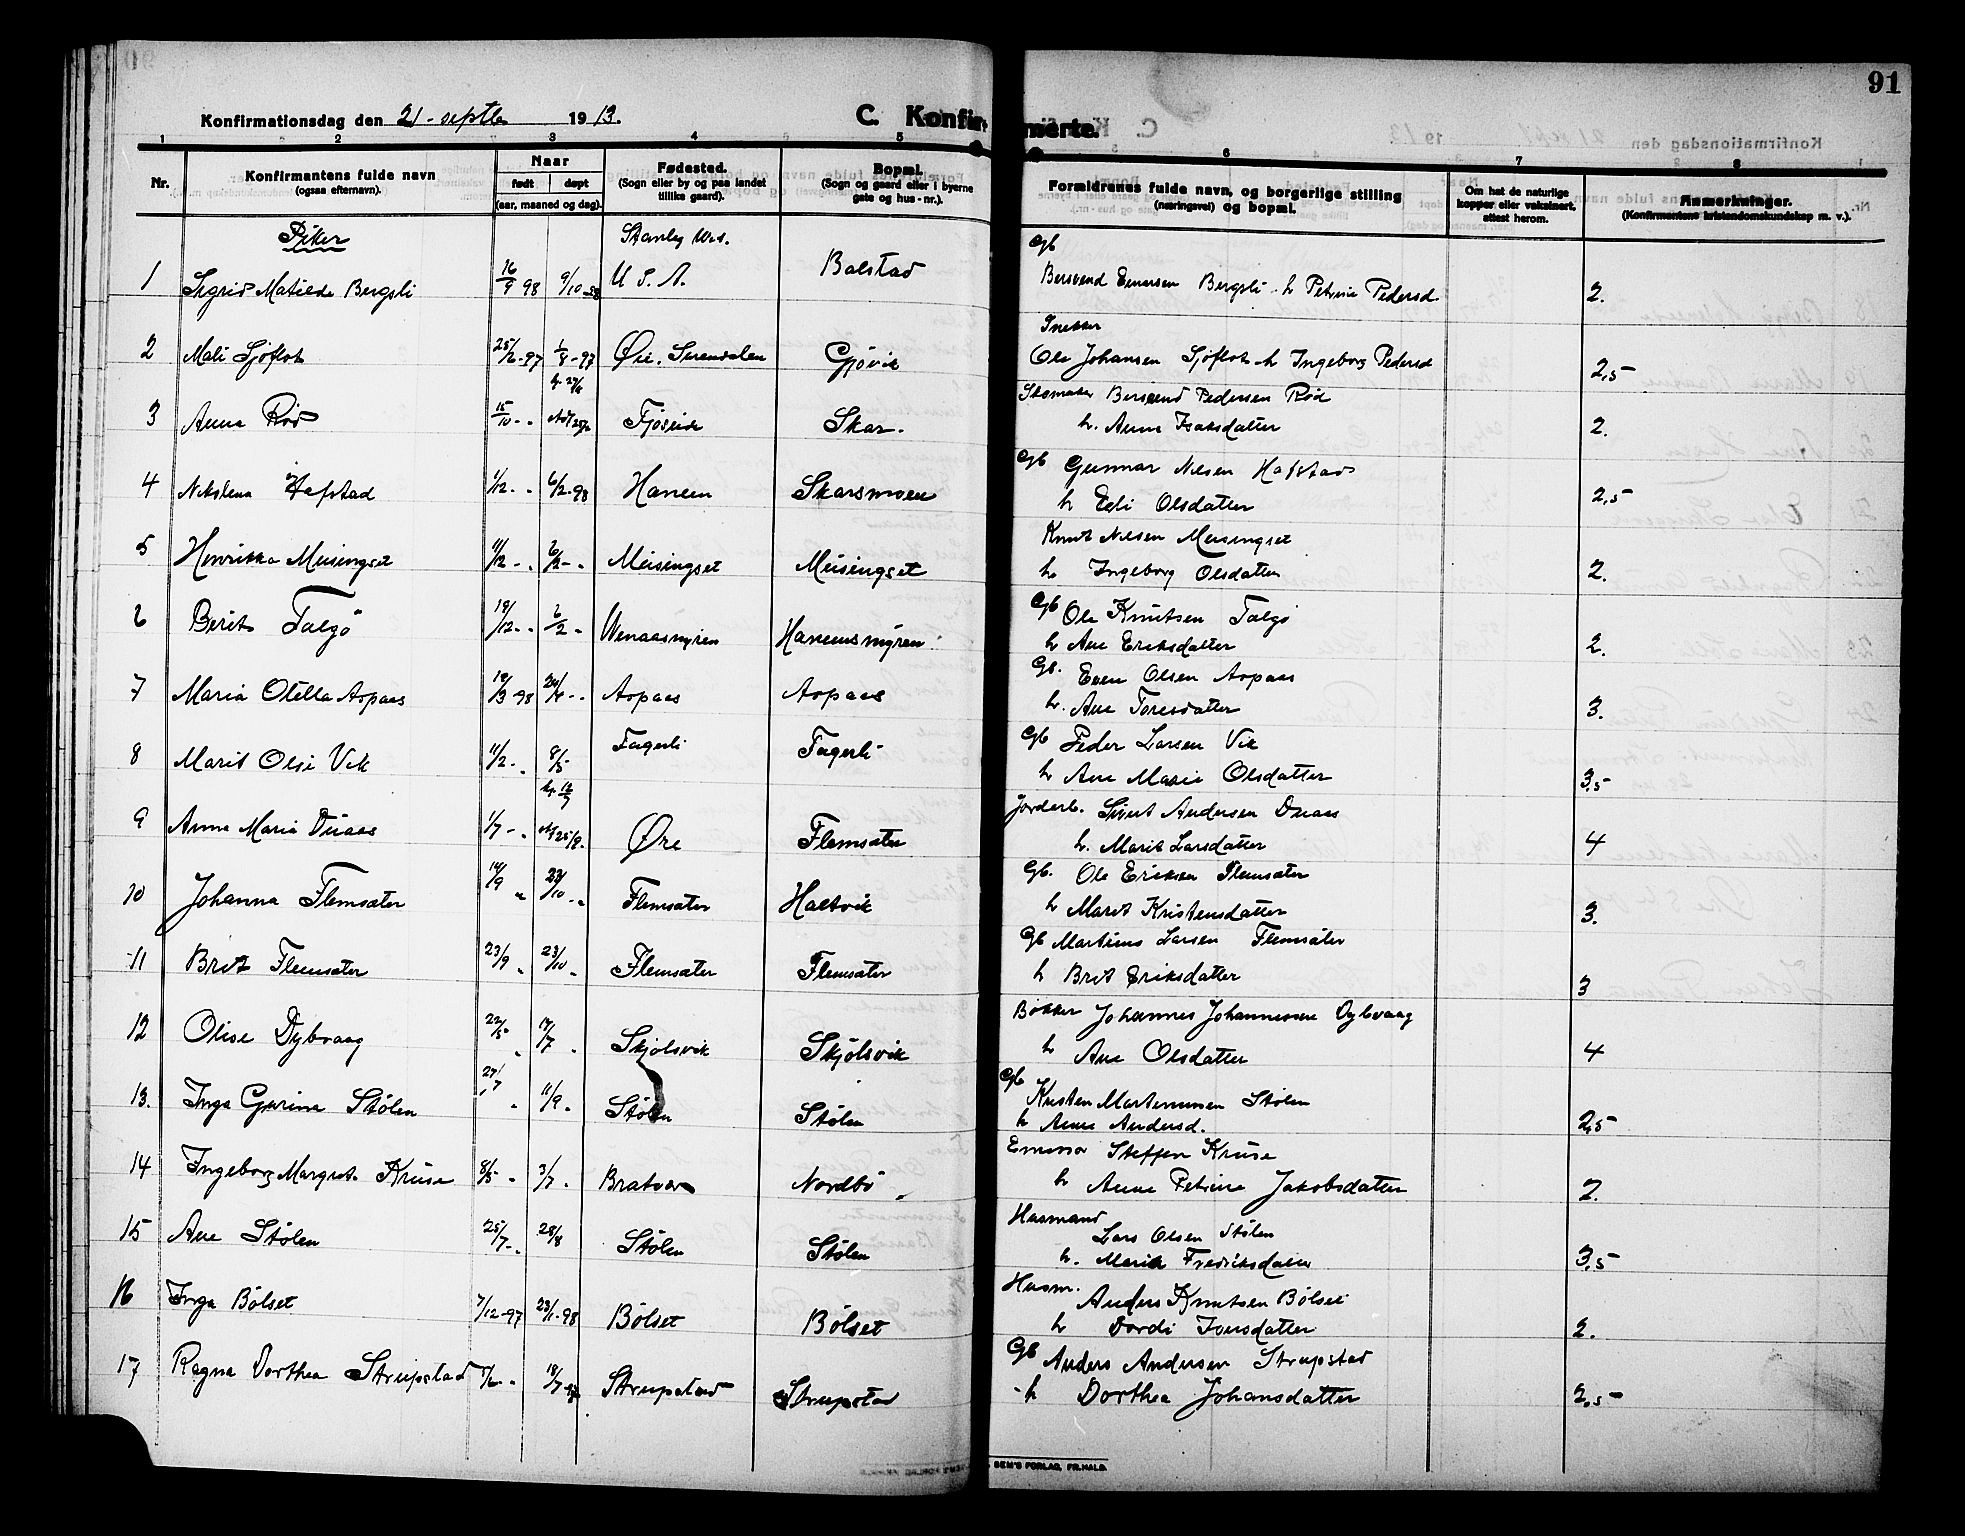 91
Konfirmationsdag den 21 - septbr 1913.
C. Konfirmerte.
1 2 3 4 5 6 7 8
Nr.
Konfirmantens fulde navn
(ogsaa efternavn).
Naar
født døpt
(aar, maaned og dag).
Fødested.
(Sogn eller by og paa landet
tillike gaard).
Bopæl.
(Sogn og gaard eller i byerne
gate og hus-nr.).
Forældrenes fulde navn, og borgerlige stilling
(næringsvei) og bopæl.
Om hat de naturlige
kopper eller vaksinert,
attest herom.
Anmerkninger.
(Konfirmantens kristendomskundskap m. v.).
Piker
1 Sigrid Matilde Bergsli 16/9 98 9/10 98 Stanley Wis. U. S. A. Balstad Gb Bersvend Einarsen Bergsli - h Petrine Pedersd. 2.
2 Mali Sjøflot 25/2-97 1/8-97 Øre. Surendalen Gjøvik Snekker Ole Johansen Sjøflot h Ingeborg Pedersd 2,5
3 Anna Rød 15/10 - " Fjøseide Skar. Skomaker Bersvend Pedersen Rød
h. Anne Isaksdatter 2.
4 Nikolena Hafstad 1/12 - " 6/2-98 Hanem Skarsmoen Gb Gunnar Nilsen Hafstad
h Eli Olsdatter 2,5
5 Henrikka Meisingset 11/12 - " 6/2 - " Meisingset Meisingset Knut Nilsen Meisingset
h Ingeborg Olsdatter 2.
6 Berit Talgø 18/12 - " 6/2 - Wenaasmyren Hanemsmyren Gb Ole Knutsen Talgø
h Ane Eriksdatter 2.
7 Maria Otella Aspaas 19/3-98 24/4 - - Aspaas Aspaas Gb. Even Olsen Aspaas
h. Ane Toresdatter 3.
8 Marit Olsi Vik 11/2 - " 8/5 Fagerli Fagerli Gb Peder Larsen Vik
h Ane Marie Olsdatter 3,5
9 Anne Maria Duaas 1/7 - " Øre Flemsæter Jorderb. Sivert Andersen Duaas
h. Marit Larsdatter 4
10 Johanna Flemsæter 14/9 " 23/10 - " Flemsæter Haltvik Gb. Ole Eriksen Flemsæter
h Marit Kristensdatter 3.
11 Brit Flemsæter 23/9 " 23/10 " Flemsæter Flemsæter Gb Martinus Larsen Flemsæter
h Brit Eriksdatter 3
12 Olise Dybvaag 22/5 " 17/7 " Skjølsvik Skjølsvik Bøkker Johannes Johannessen Dybvaag
h Ane Olsdatter 4
13. Inga Gurine Stølen 27/7 " 11/9 " Stølen Stølen Gb Kristen Martinussen Stølen
h Anne Andersd. 2,5
14 Ingeborg Margret. Kruse 8/5 " 3/7 " Bratvær Nordbø Emissær Steffen Kruse
h Anne Petrine Jakobsdatter 2.
15 Ane Stølen 25/7 - " 28/8 Stølen Stølen Husmand Lars Olsen Stølen
h. Marie Fredriksdatter 3,5
16 Inga Bølset 7/12-97 23/1-98 Bølset Bølset Husm. Anders Knutsen Bølset
h Dordi Iversdatter 2.
17 Ragna Dorthea Strupstad 18/7 Strupstad Strupstad Gb Anders Andersen Strupstad
- h Dorthea Johansdatter 2,5
SEM'S FORLAG, FR.HALD.